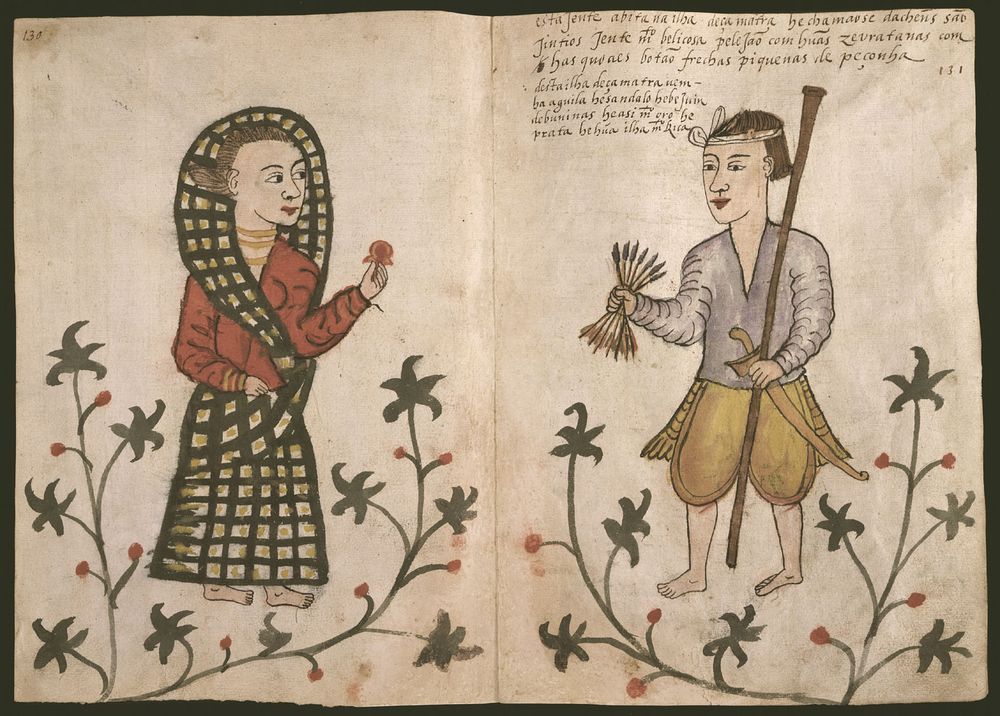 130
esta Jente abita na ilha deçamatra he chamaõse dachens saõ
Jintios Jente m.to belicosa pelejaõ com huãs zevratanas com
has quoaes botaõ frechas piquenas de peçonha
131
desta ilha deçamatra vem-
ha aguila he sandalo he bejuin
de buninas he asi m.to oro he
prata he hũa ilha m.to Rica